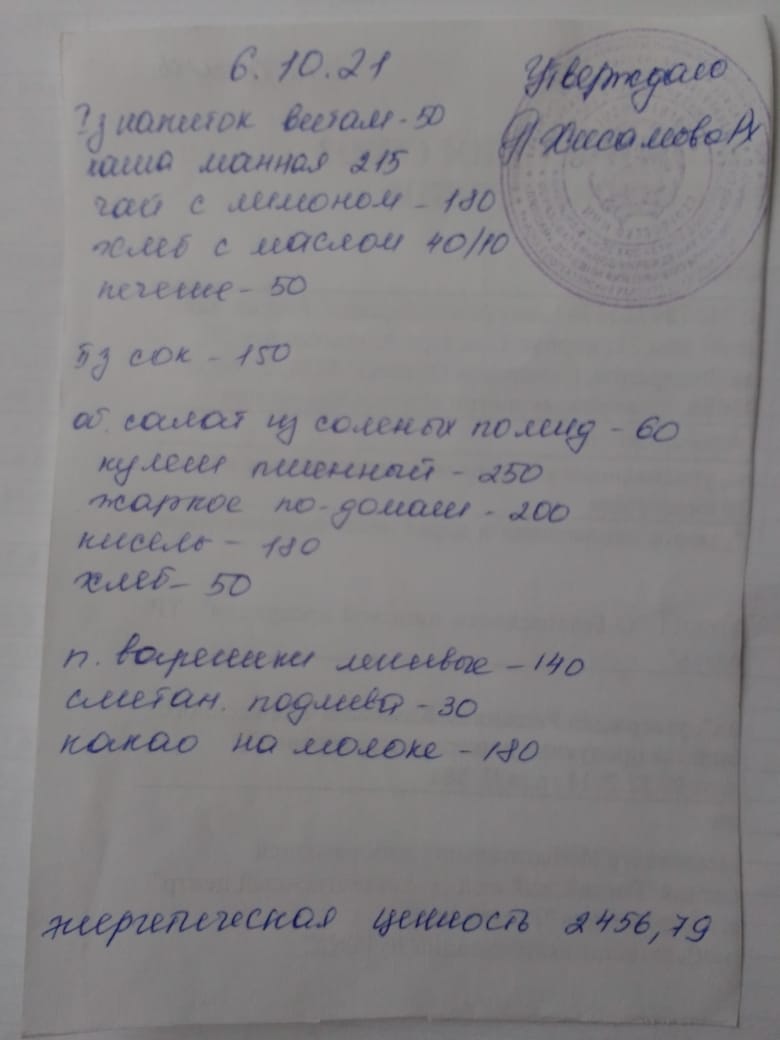 6.10.21
Утверждаю
Хисамова
напиток витам - 50
каша манная 215
чай с лимоном - 180
хлеб с маслом 40/10
печенье - 50
IIз сок - 150
об. салат из соленых помид - 60
кулеш пшенный - 250
жаркое по-домаш - 200
кисель - 180
хлеб - 50
п. вареники ленивые - 140
сметан. подлива - 30
какао на молоке - 180
энергетическая ценность 2456,79